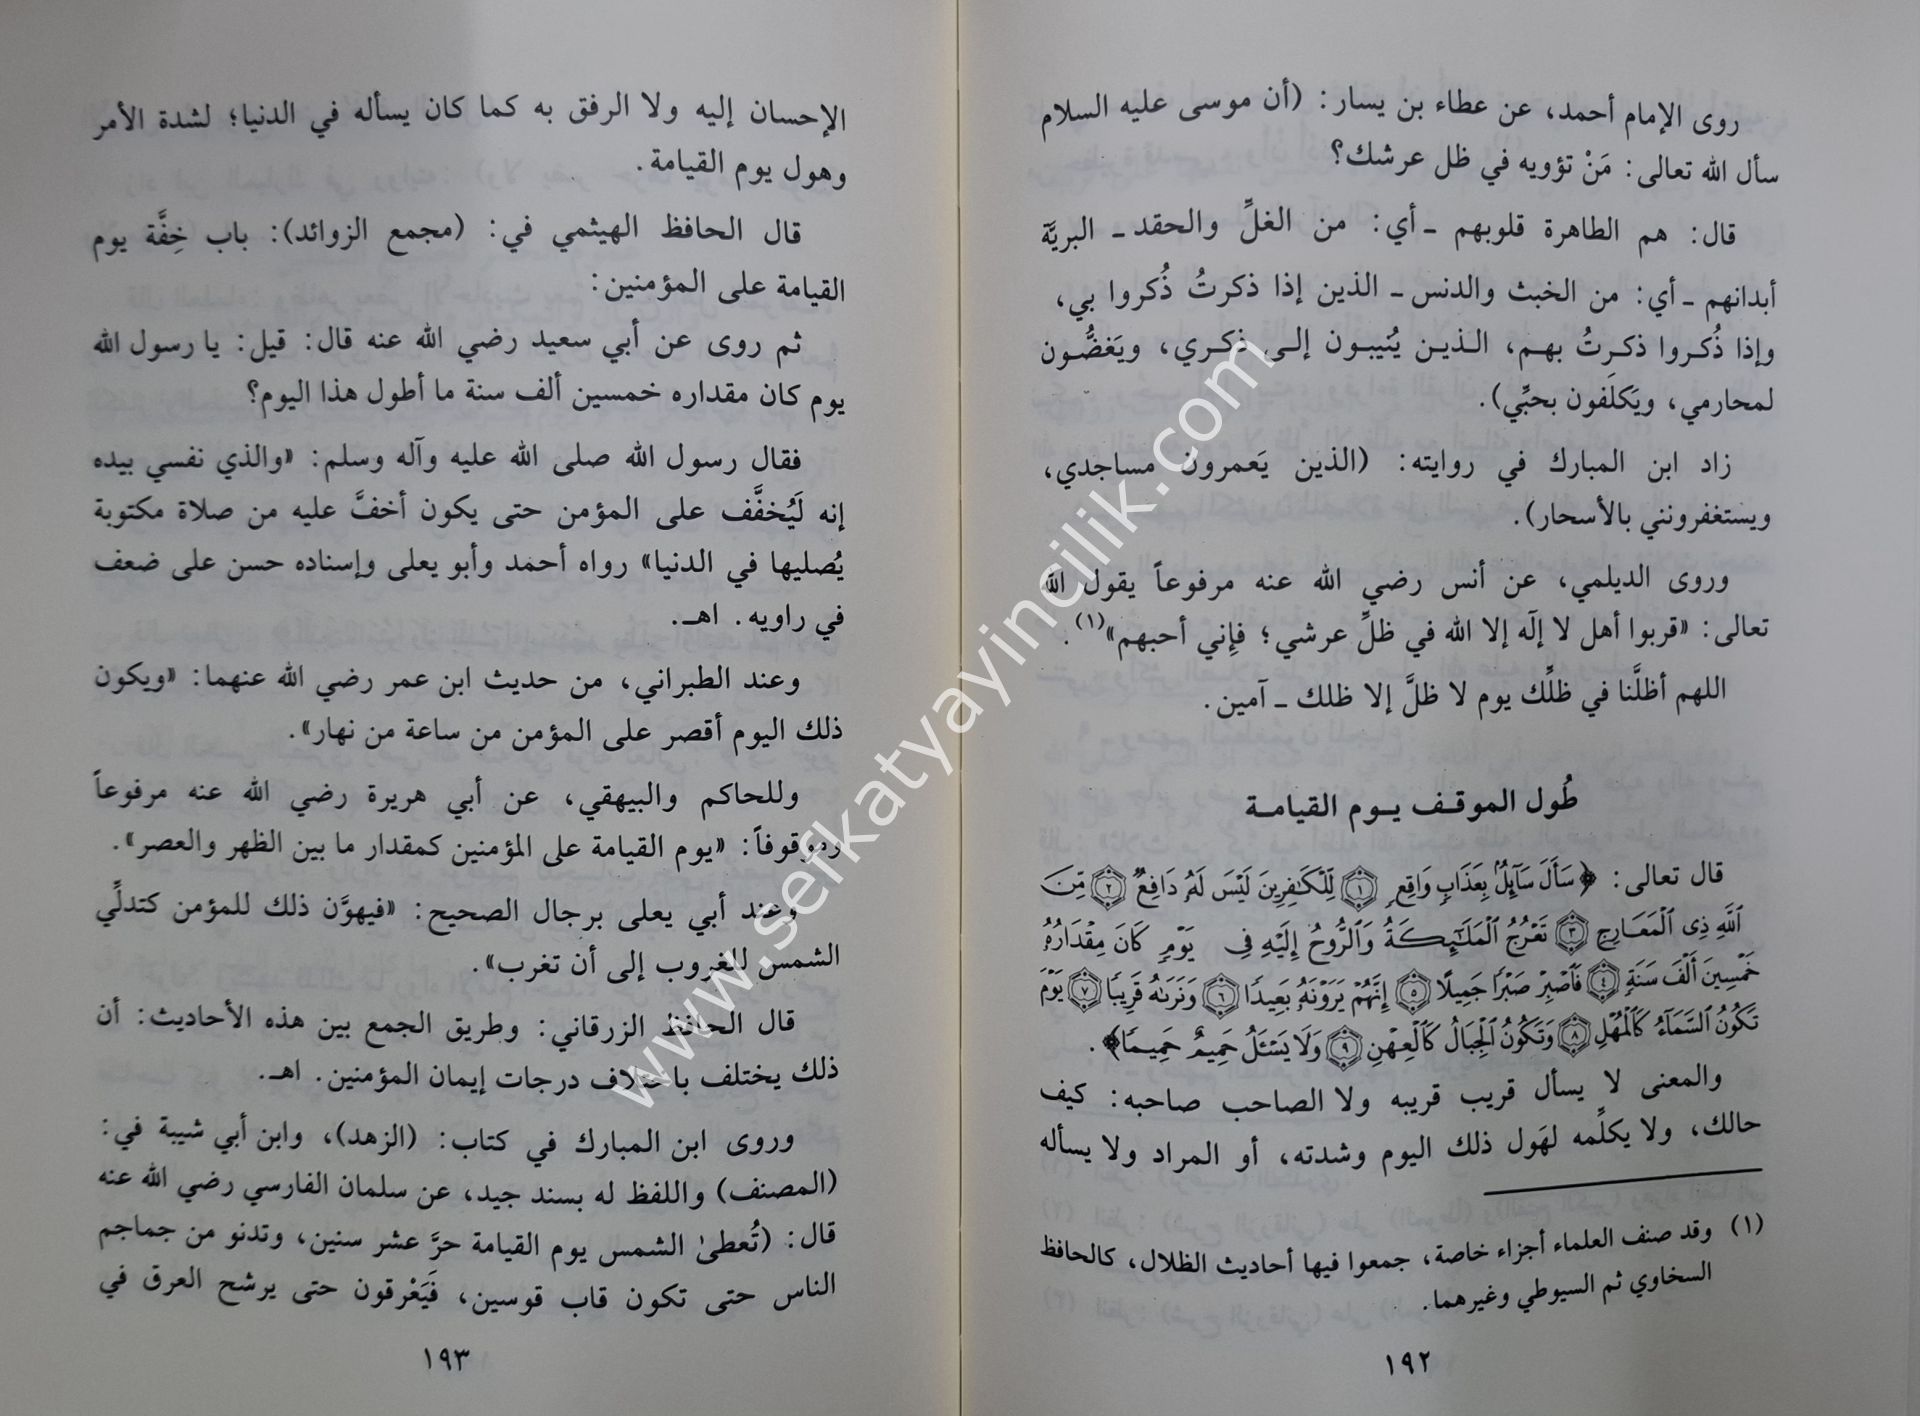 روى الإمام أحمد، عن عطاء بن يسار: (أن موسى عليه السلام
سأل الله تعالى: مَنْ تؤويه في ظل عرشك؟
قال: هم الطاهرة قلوبهم ـ أي: من الغلِّ والحقد ـ البريَّة
أبدانهم ـ أي: من الخبث والدنس ـ الذين إذا ذكرتُ ذُكروا بي،
وإذا ذُكروا ذكرتُ بهم، الذين يُنيبون إلى ذكري، ويَغضُّون
لمحارمي، ويَكلَفون بحبِّي).
زاد ابن المبارك في روايته: (الذين يَعمرون مساجدي،
ويستغفرونني بالأسحار).
وروى الديلمي، عن أنس رضي الله عنه مرفوعاً يقول الله
تعالى: «قربوا أهل لا إلَه إلا الله في ظلِّ عرشي؛ فإني أحبهم»(١).
اللهم أظلَّنا في ظلِّك يوم لا ظلَّ إلا ظلك ـ آمين.
طُول الموقف يوم القيامة
قال تعالى: ﴿سَأَلَ سَآئِلُۢ بِعَذَابٖ وَاقِعٖ ١ لِّلۡكَٰفِرِينَ لَيۡسَ لَهُۥ دَافِعٞ ٢ مِّنَ
ٱللَّهِ ذِي ٱلۡمَعَارِجِ ٣ تَعۡرُجُ ٱلۡمَلَٰٓئِكَةُ وَٱلرُّوحُ إِلَيۡهِ فِي يَوۡمٖ كَانَ مِقۡدَارُهُۥ
خَمۡسِينَ أَلۡفَ سَنَةٖ ٤ فَٱصۡبِرۡ صَبۡرٗا جَمِيلًا ٥ إِنَّهُمۡ يَرَوۡنَهُۥ بَعِيدٗا ٦ وَنَرَىٰهُ قَرِيبٗا ٧ يَوۡمَ
تَكُونُ ٱلسَّمَآءُ كَٱلۡمُهۡلِ ٨ وَتَكُونُ ٱلۡجِبَالُ كَٱلۡعِهۡنِ ٩ وَلَا يَسۡـَٔلُ حَمِيمٌ حَمِيمٗا﴾.
والمعنى لا يسأل قريب قريبه ولا الصاحب صاحبه: كيف
حالك، ولا يكلِّمه لهَول ذلك اليوم وشدته، أو المراد ولا يسأله
(١) وقد صنف العلماء أجزاء خاصة، جمعوا فيها أحاديث الظلال، كالحافظ
السخاوي ثم السيوطي وغيرهما.
١٩٢
الإحسان إليه ولا الرفق به كما كان يسأله في الدنيا؛ لشدة الأمر
وهول يوم القيامة.
قال الحافظ الهيثمي في: (مجمع الزوائد): باب خِفَّة يوم
القيامة على المؤمنين:
ثم روى عن أبي سعيد رضي الله عنه قال: قيل: يا رسول الله
يوم كان مقداره خمسين ألف سنة ما أطول هذا اليوم؟
فقال رسول الله صلى الله عليه وآله وسلم: «والذي نفسي بيده
إنه لَيُخفَّف على المؤمن حتى يكون أخفَّ عليه من صلاة مكتوبة
يُصليها في الدنيا» رواه أحمد وأبو يعلى وإسناده حسن على ضعف
في راويه. اهـ.
وعند الطبراني، من حديث ابن عمر رضي الله عنهما: «ويكون
ذلك اليوم أقصر على المؤمن من ساعة من نهار».
وللحاكم والبيهقي، عن أبي هريرة رضي الله عنه مرفوعاً
وموقوفاً: «يوم القيامة على المؤمنين كمقدار ما بين الظهر والعصر».
وعند أبي يعلى برجال الصحيح: «فيهوَّن ذلك للمؤمن كتدلِّي
الشمس للغروب إلى أن تغرب».
قال الحافظ الزرقاني: وطريق الجمع بين هذه الأحاديث: أن
ذلك يختلف باختلاف درجات إيمان المؤمنين. اهـ.
وروى ابن المبارك في كتاب: (الزهد)، وابن أبي شيبة في:
(المصنف) واللفظ له بسند جيد، عن سلمان الفارسي رضي الله عنه
قال: (تُعطىٰ الشمس يوم القيامة حرَّ عشر سنين، وتدنو من جماجم
الناس حتى تكون قاب قوسين، فَيَعْرقون حتى يرشح العرق في
١٩٣
www.sefkatyayincilik.com